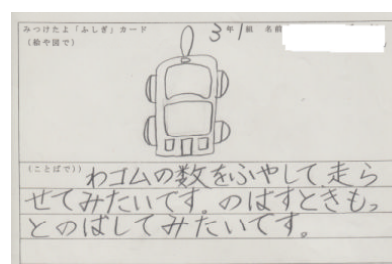 みつけたよ「ふしぎ」カード
3年1組 名前
(絵や図で)
(ことばで)
わゴムの数をふやして、走ら
せてみたいです。のばすときもっ
とのばしてみたいです。